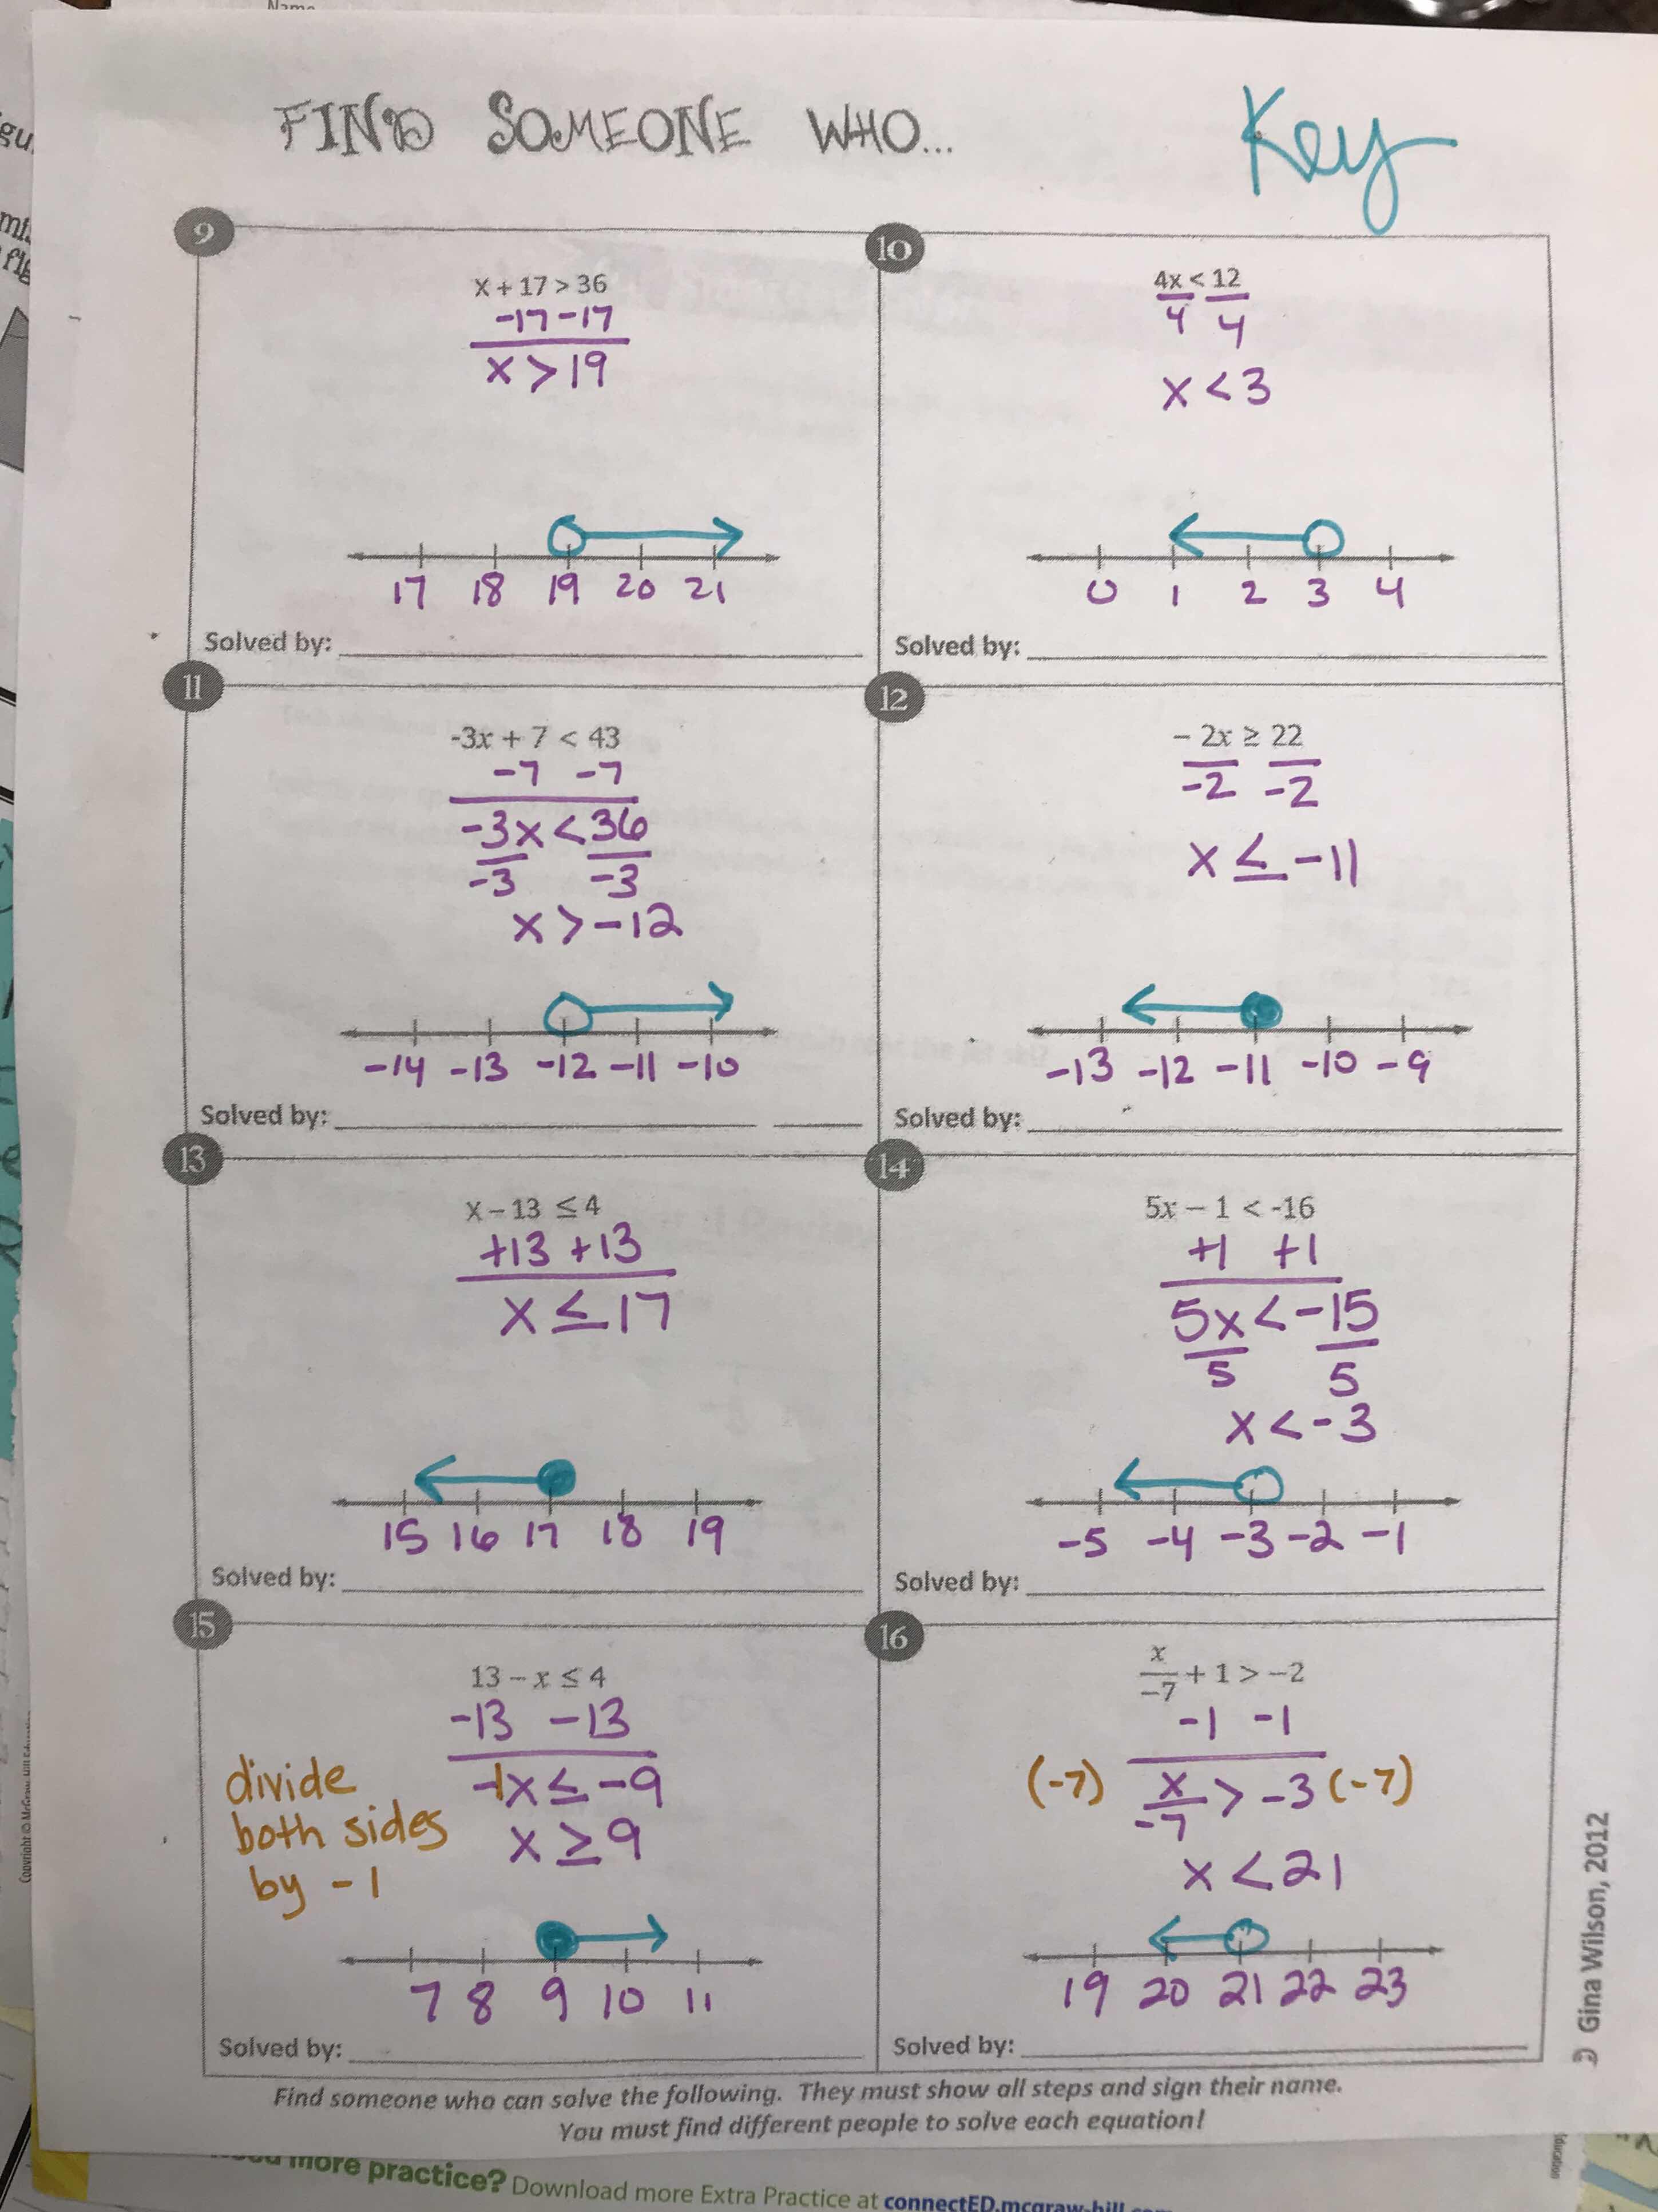 Name
FIND SOMEONE WHO...
Key
9
x + 17 > 36
-17 -17
x > 19
17 18 19 20 21
Solved by:
10
4x < 12
4 4
x < 3
0 1 2 3 4
Solved by:
11
-3x + 7 < 43
-7 -7
-3x < 36
-3 -3
x > -12
-14 -13 -12 -11 -10
Solved by:
12
- 2x ≥ 22
-2 -2
x ≤ -11
-13 -12 -11 -10 -9
Solved by:
13
x - 13 ≤ 4
+13 +13
x ≤ 17
15 16 17 18 19
Solved by:
14
5x - 1 < -16
+1 +1
5x < -15
5 5
x < -3
-5 -4 -3 -2 -1
Solved by:
15
13 - x ≤ 4
-13 -13
-1x ≤ -9
x ≥ 9
divide
both sides
by -1
7 8 9 10 11
Solved by:
16
x
-7
+ 1 > -2
-1 -1
(-7) x > -3 (-7)
-7
x < 21
19 20 21 22 23
Solved by:
Gina Wilson, 2012
Find someone who can solve the following. They must show all steps and sign their name.
You must find different people to solve each equation!
more practice? Download more Extra Practice at connectED.mcgraw-hill